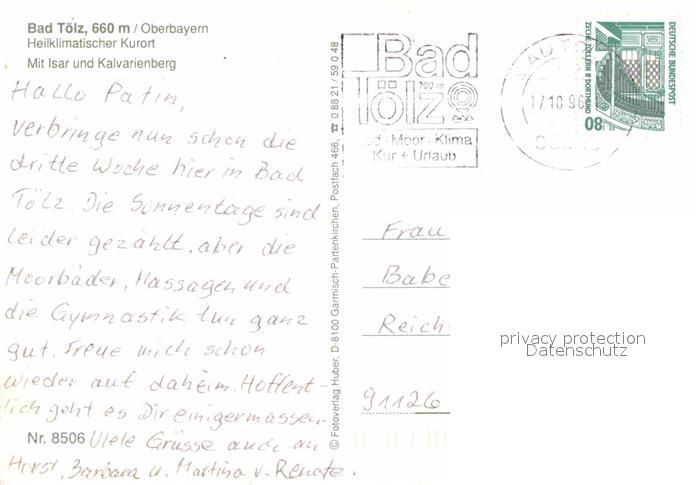 Bad Tölz, 660 m / Oberbayern
Heilklimatischer Kurort
Mit Isar und Kalvarienberg
Hallo Patin,
verbringe nun schon die
dritte Woche hier in Bad
Tölz. Die Sonnentage sind
leider gezählt, aber die
Moorbäder, Massagen und
die Gymnastik tun ganz
gut. Freue mich schon
wieder auf daheim. Hoffent-
lich geht es Dir einigermassen.
Nr. 8506 Viele Grüsse auch an
Horst, Barbara u. Martina v. Renate.
© Fotoverlag Huber, D-8100 Garmisch-Partenkirchen, Postfach 466, ☎ 0 88 21 / 59 0 48
Bad
Tölz
700 m
Moor - Klima
Kur + Urlaub
BAD
17.10.96
DEUTSCHE BUNDESPOST
ZECHE ZOLLERN II DORTMUND
80
Frau
Babe
Reich
91126
privacy protection
Datenschutz